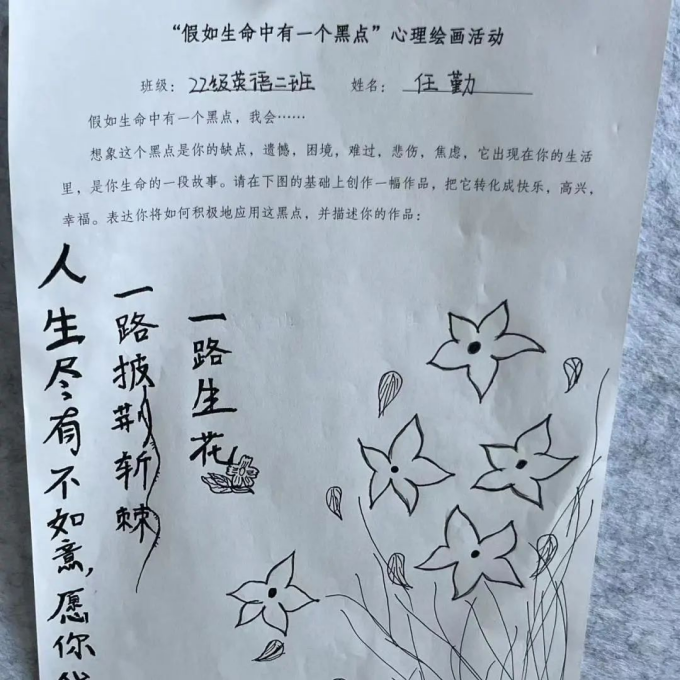 “假如生命中有一个黑点”心理绘画活动
班级：22级英语二班 姓名：任勤
假如生命中有一个黑点，我会……
想象这个黑点是你的缺点，遗憾，困境，难过，悲伤，焦虑，它出现在你的生活
里，是你生命的一段故事。请在下图的基础上创作一幅作品，把它转化成快乐，高兴，
幸福。表达你将如何积极地应用这黑点，并描述你的作品：
人生尽有不如意，愿你
一路披荆斩棘
一路生花